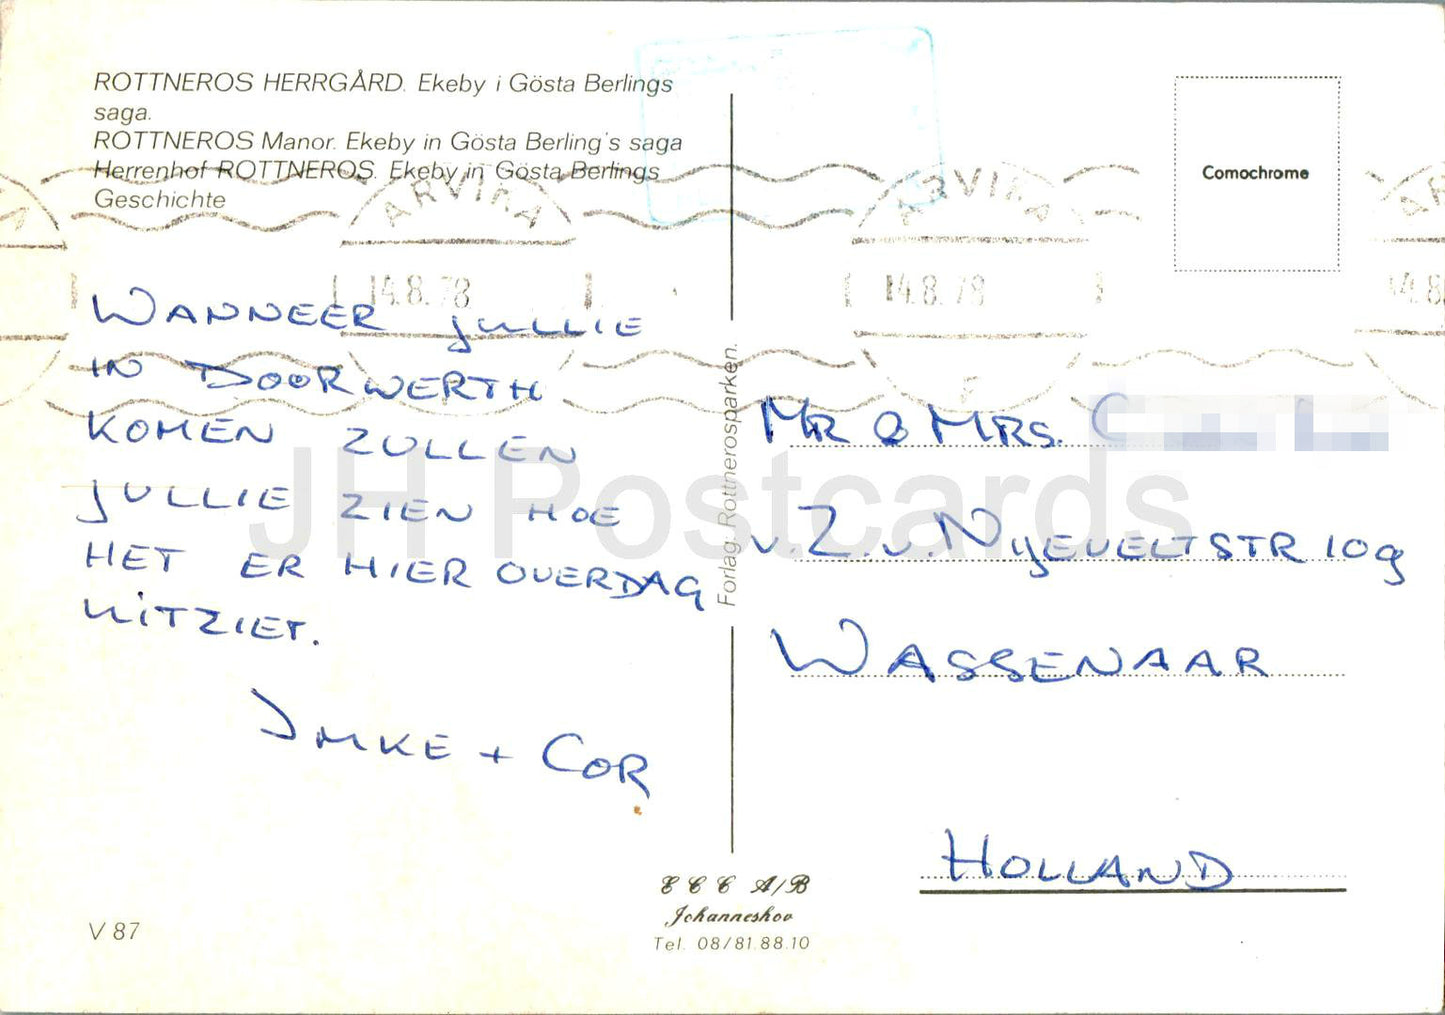 ROTTNEROS HERRGÅRD. Ekeby i Gösta Berlings
saga.
ROTTNEROS Manor. Ekeby in Gösta Berling's saga
Herrenhof ROTTNEROS. Ekeby in Gösta Berlings
Geschichte
ARVIKA
14.8.78
ARVIKA
14.8.78
Comochrome
WANNEER JULLIE
IN DOORWERTH
KOMEN ZULLEN
JULLIE ZIEN HOE
HET ER HIER OVERDAG
UITZIET.
IMKE + COR
Förlag Rottnerosparken.
MR & MRS. C
v. Z. v. NIJEVELTSTR 109
WASSENAAR
HOLLAND
JH Postcards
V 87
E C C A/B
Johanneshov
Tel. 08/81.88.10